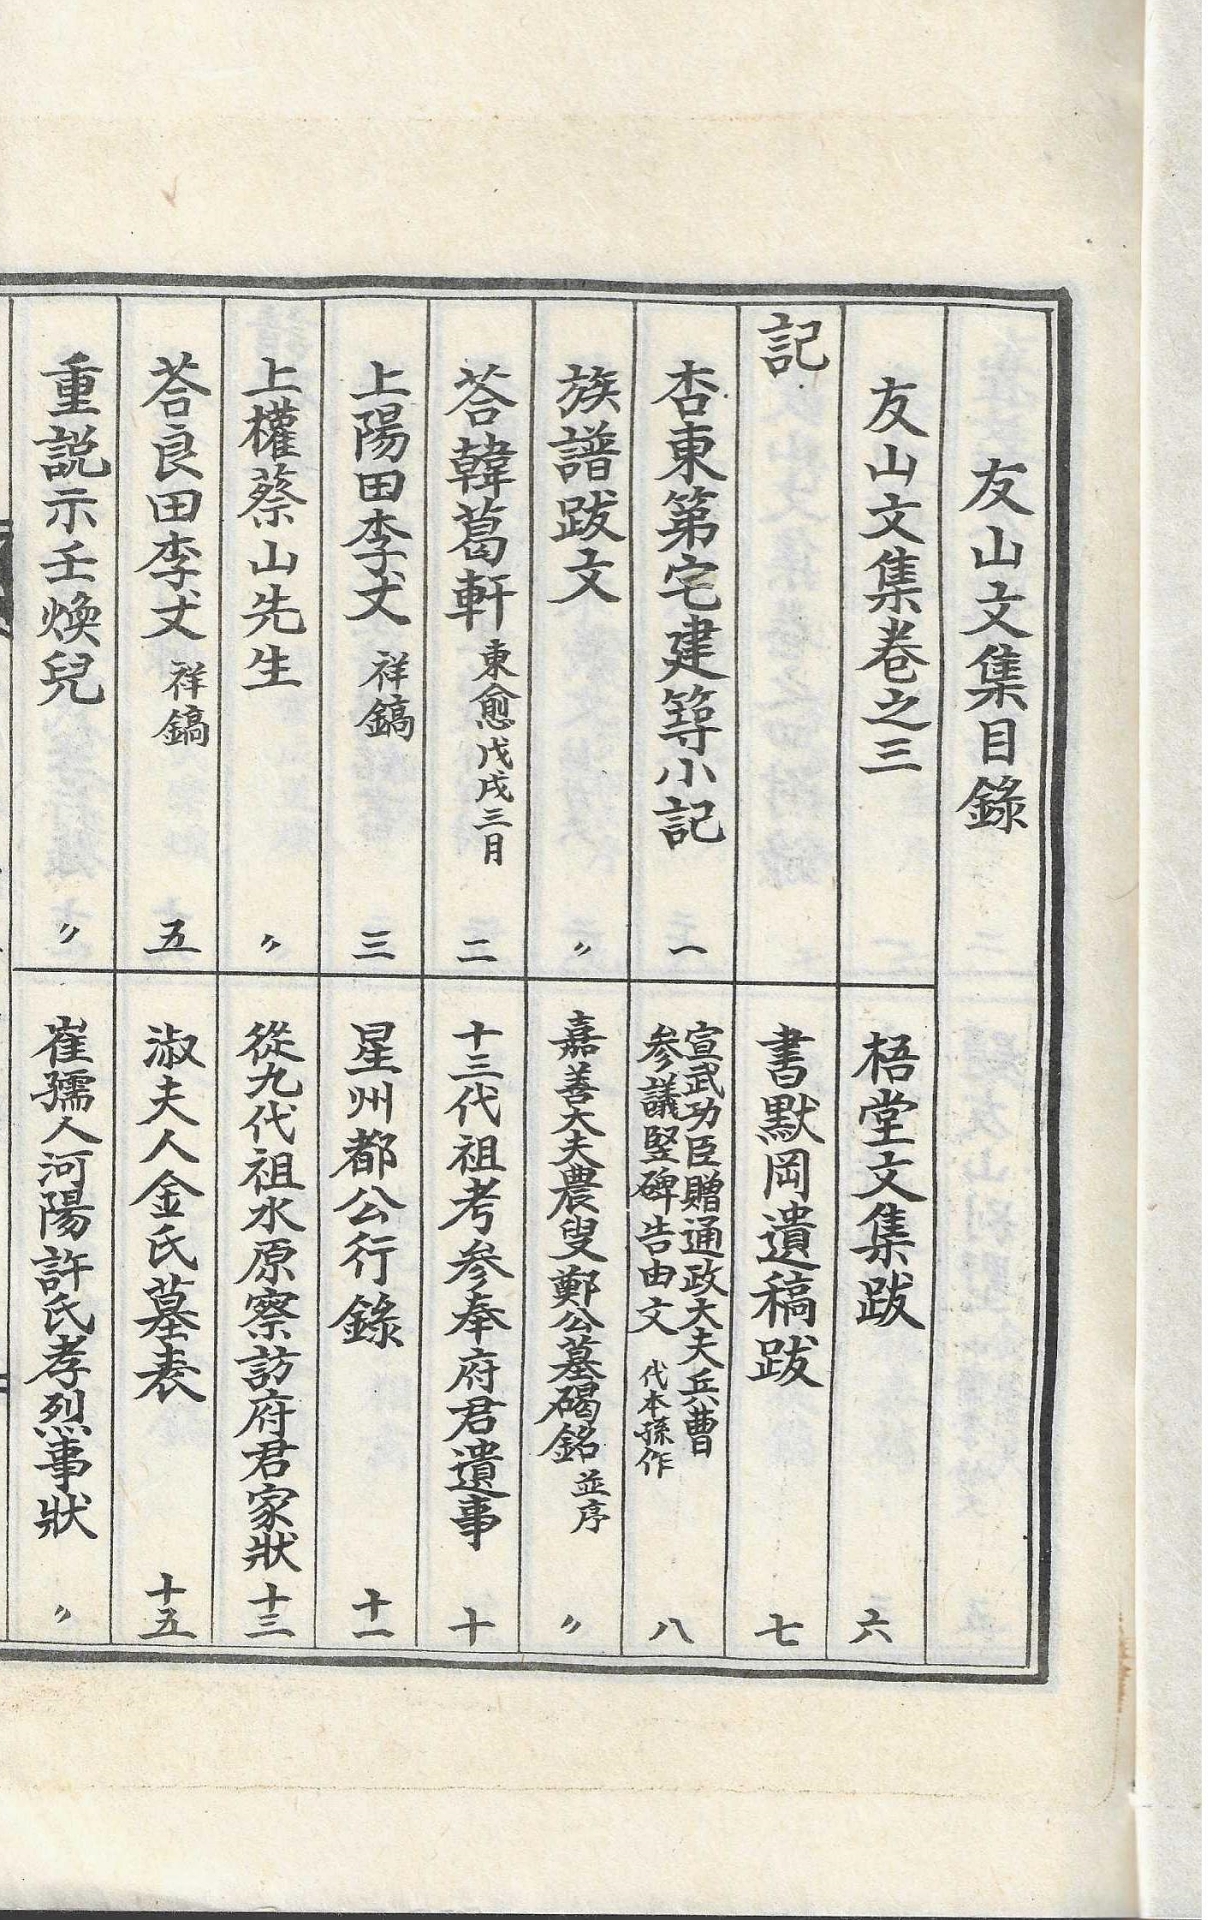 友山文集目錄
友山文集卷之三
記
杏東第宅建築小記 一
族譜跋文 〃
荅韓葛軒 東愈戊戌三月 二
上陽田李丈 祥鎬 三
上權蔡山先生 〃
荅良田李丈 祥鎬 五
重説示壬煥兒 〃
梧堂文集跋 六
書默岡遺稿跋 七
宣武功臣贈通政大夫兵曹
参議竪碑告由文 代本孫作 八
嘉善大夫農叟鄭公墓碣銘 並序 〃
十三代祖考参奉府君遺事 十
星州都公行錄 十一
從九代祖水原察訪府君家狀 十三
淑夫人金氏墓表 十五
崔孺人河陽許氏孝烈事狀 〃